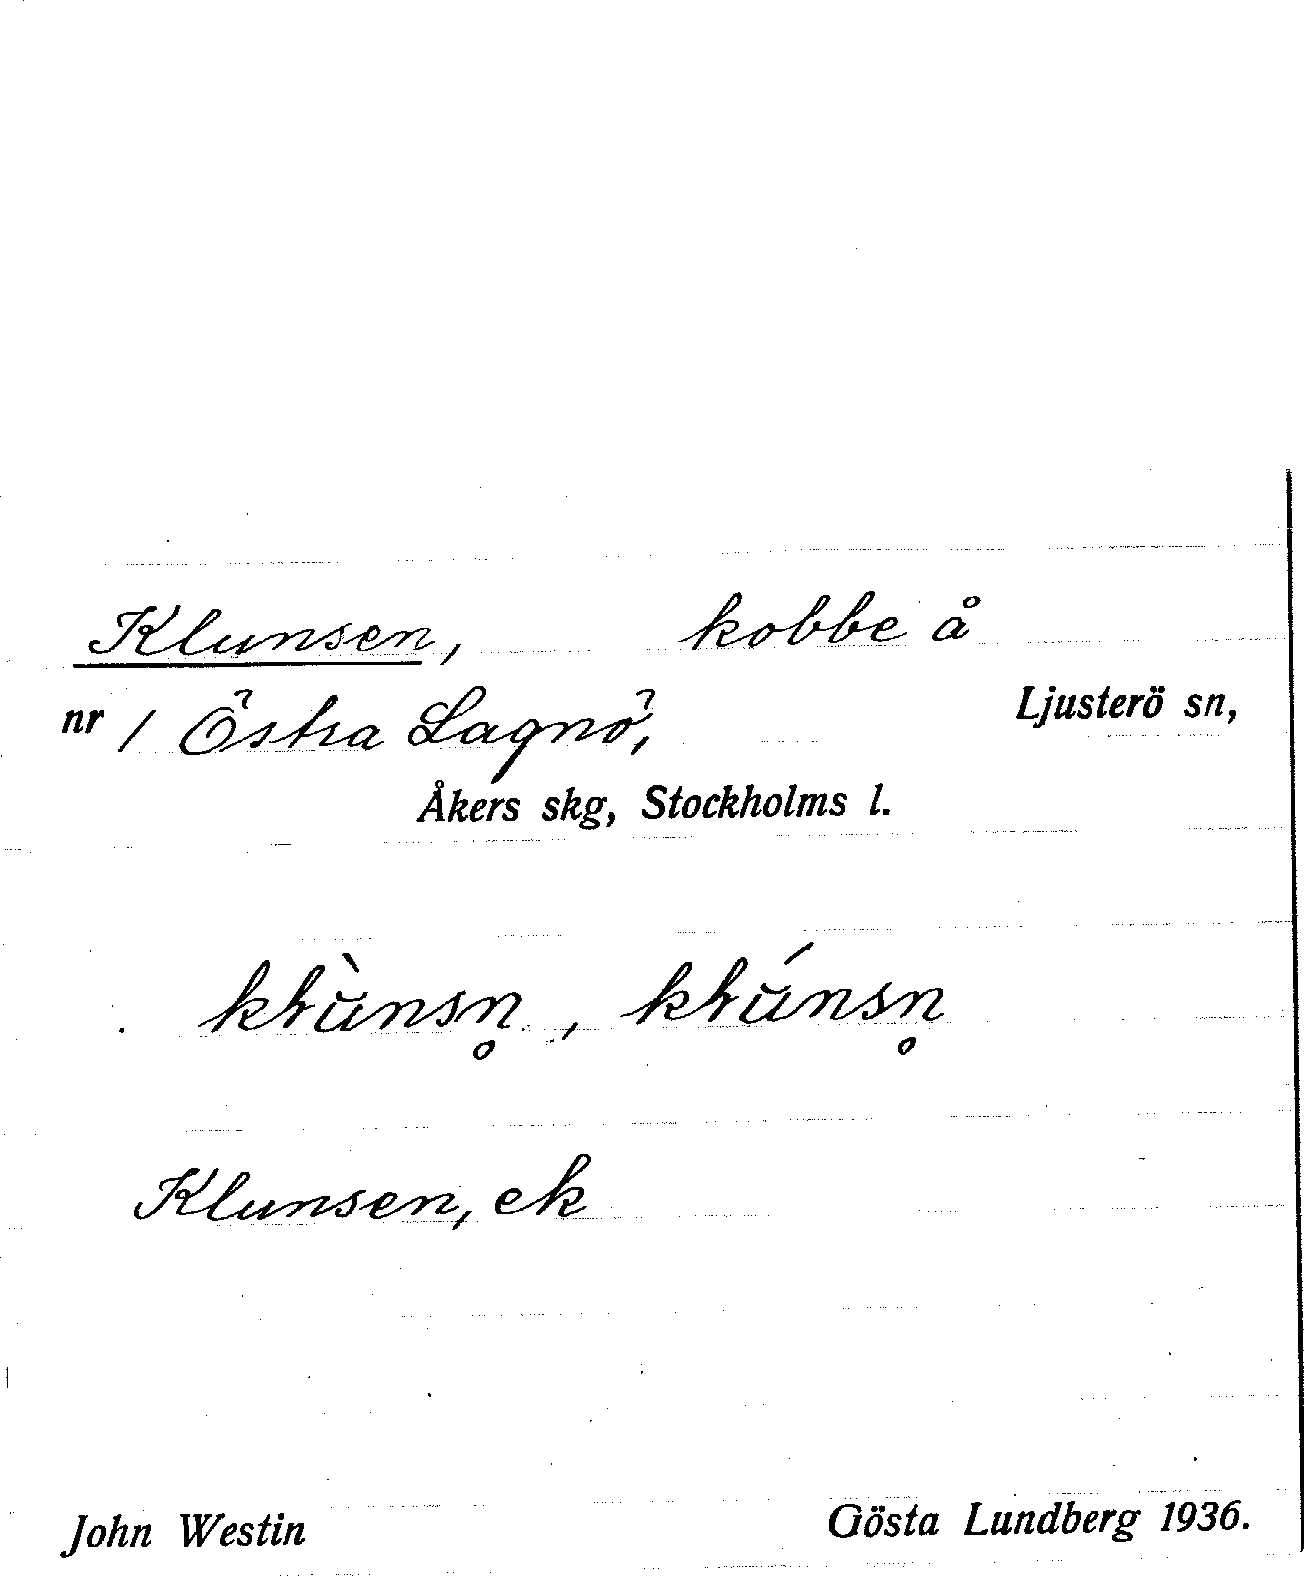 Klunsen, kobbe å
nr 1 Östra Lagnö, Ljusterö sn,
Åkers skg, Stockholms l.
Klunsen, ek
John Westin Gösta Lundberg 1936.